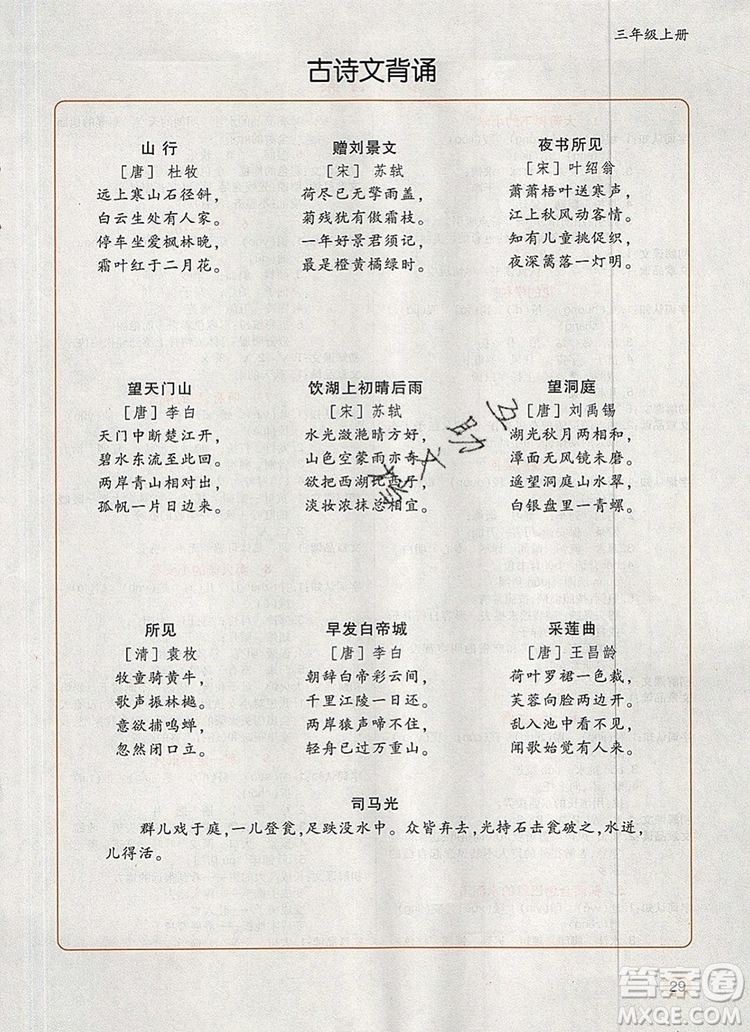 三年级上册
古诗文背诵
山 行
［唐］杜牧
远上寒山石径斜，
白云生处有人家。
停车坐爱枫林晚，
霜叶红于二月花。
赠刘景文
［宋］苏轼
荷尽已无擎雨盖，
菊残犹有傲霜枝。
一年好景君须记，
最是橙黄橘绿时。
夜书所见
［宋］叶绍翁
萧萧梧叶送寒声，
江上秋风动客情。
知有儿童挑促织，
夜深篱落一灯明。
望天门山
［唐］李白
天门中断楚江开，
碧水东流至此回。
两岸青山相对出，
孤帆一片日边来。
饮湖上初晴后雨
［宋］苏轼
水光潋滟晴方好，
山色空蒙雨亦奇。
欲把西湖比西子，
淡妆浓抹总相宜。
望洞庭
［唐］刘禹锡
湖光秋月两相和，
潭面无风镜未磨。
遥望洞庭山水翠，
白银盘里一青螺。
所见
［清］袁枚
牧童骑黄牛，
歌声振林樾。
意欲捕鸣蝉，
忽然闭口立。
早发白帝城
［唐］李白
朝辞白帝彩云间，
千里江陵一日还。
两岸猿声啼不住，
轻舟已过万重山。
采莲曲
［唐］王昌龄
荷叶罗裙一色裁，
芙蓉向脸两边开。
乱入池中看不见，
闻歌始觉有人来。
司马光
群儿戏于庭，一儿登瓮，足跌没水中。众皆弃去，光持石击瓮破之，水迸，
儿得活。
29
答案圈
MXQE.COM